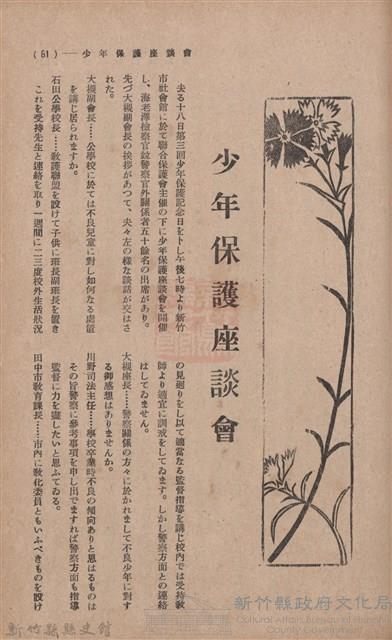 (61)——少年保護座談會
少年保護座談會
去る十八日第三回少年保護記念日をトし午後七時より新竹
市社會館に於て聯合保護會主催の下に少年保護座談會を開催
し、海老澤檢察官鏡警察官外關係者五十餘名の出席があり。
先づ大槻副會長の挨拶があつて、夫々左の樣な談話が交はさ
れた。
大槻副會長……公學校に於ては不良兒童に對し如何なる處置
を講じ居られますか。
石田公學校長……敎護聯盟を設けて子供に班長副班長を置き
これを受持先生と連絡を取り一週間に二三度校外生活狀況
の見廻りをし以て適當なる監督指導を講じ校內では受持敎
師より適宜に訓戒をしてゐます。しかし警察方面との連絡
はしてゐません。
大槻座長……警察關係の方々に於かれまして不良少年に對す
る御感想はありませんか。
川野司法主任……學校卒業時不良の傾向ありと思はるものは
その旨警察に參考事項を申し出でますれば警察方面も指導
監督に力を盡したいと思ふてゐる。
田中市敎育課長……市內に敎化委員ともいふべきものを設け
新竹縣縣史館
新竹縣政府文化局
Cultural Affairs Bureau of Hsinchu County